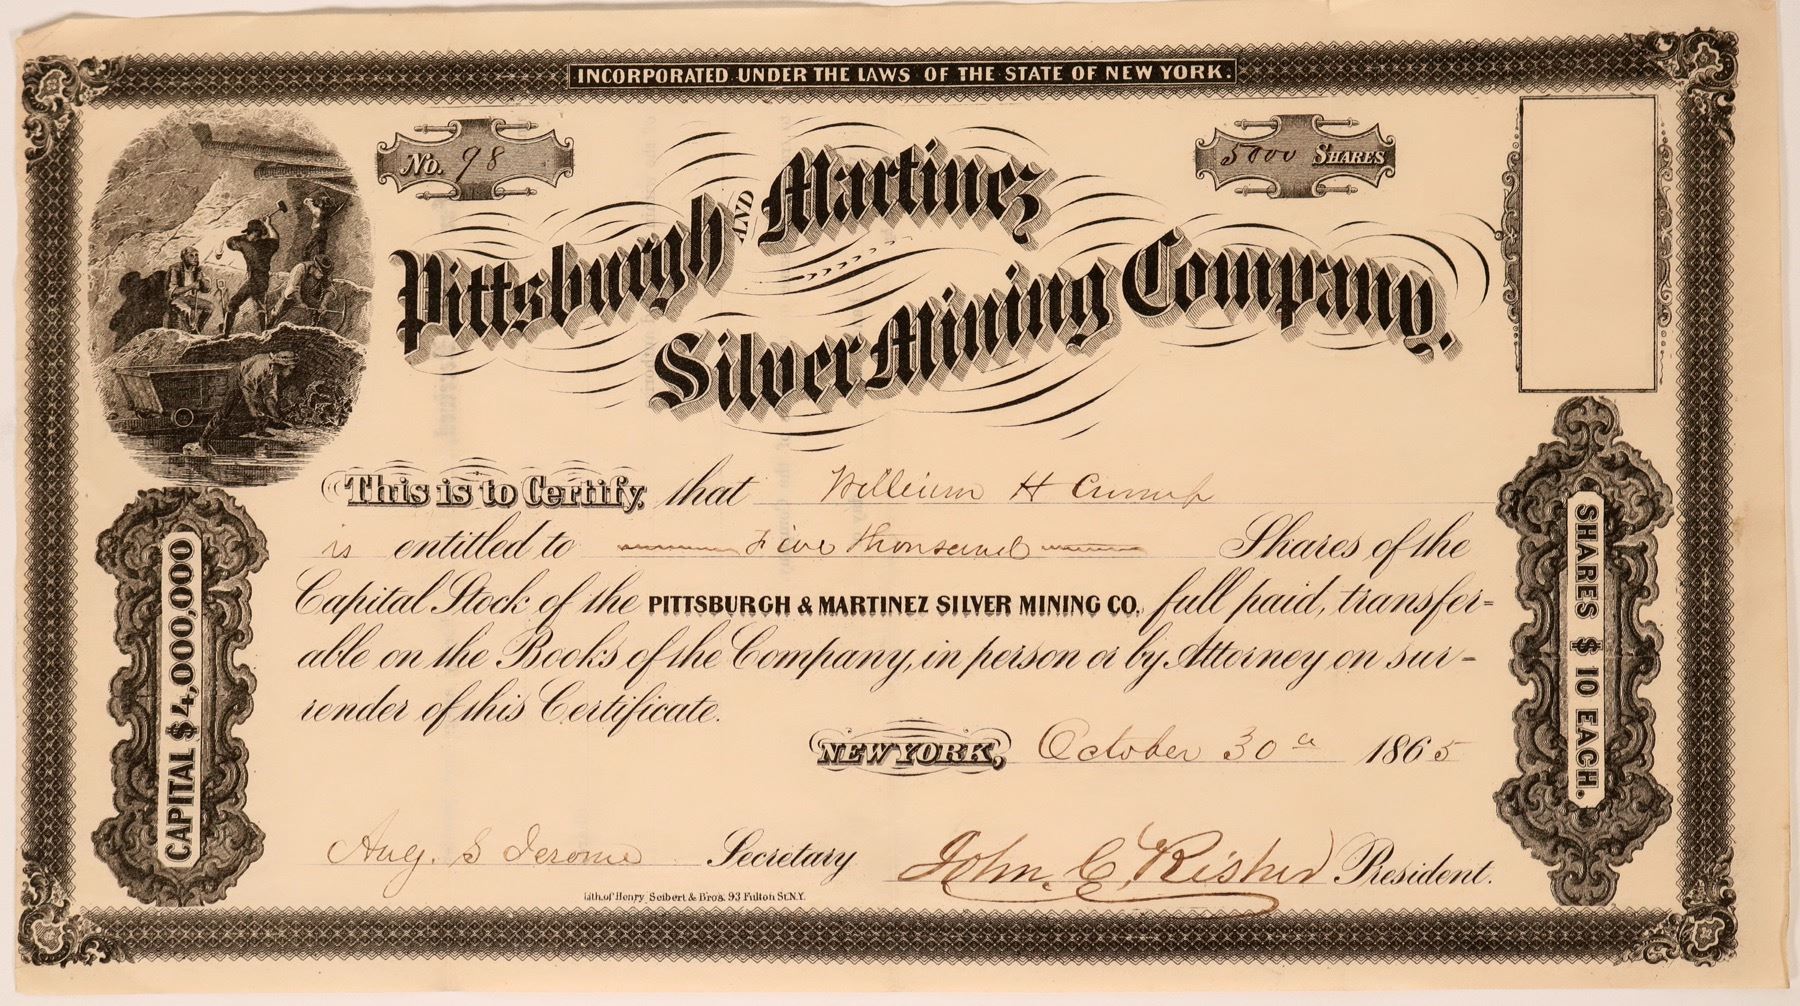 INCORPORATED UNDER THE LAWS OF THE STATE OF NEW YORK.
No. 98
5000 SHARES
Pittsburgh AND Martinez
Silver Mining Company.
This is to Certify, that William H Crump
is entitled to Five Thousand Shares of the
Capital Stock of the PITTSBURGH & MARTINEZ SILVER MINING CO. full paid, transfer=
able on the Books of the Company, in person or by Attorney on sur-
render of this Certificate.
NEW YORK, October 30 1865
Aug. S Jerome Secretary John C. Risher President.
Lith. of Henry Seibert & Bros. 93 Fulton St. N.Y.
CAPITAL $4,000,000
SHARES $10 EACH.